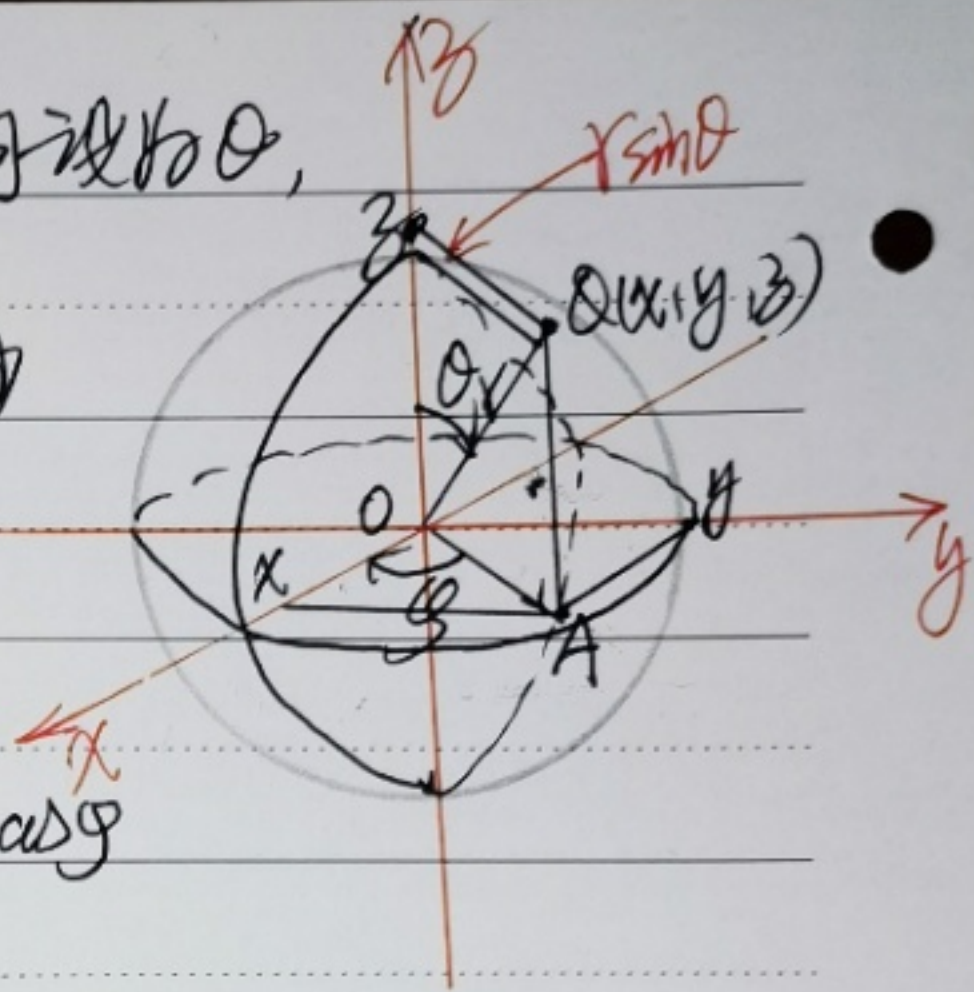 z
设为θ,
r sinθ
z
Q(x,y,z)
θ
r
O
y
y
x
φ
A
x
cosφ